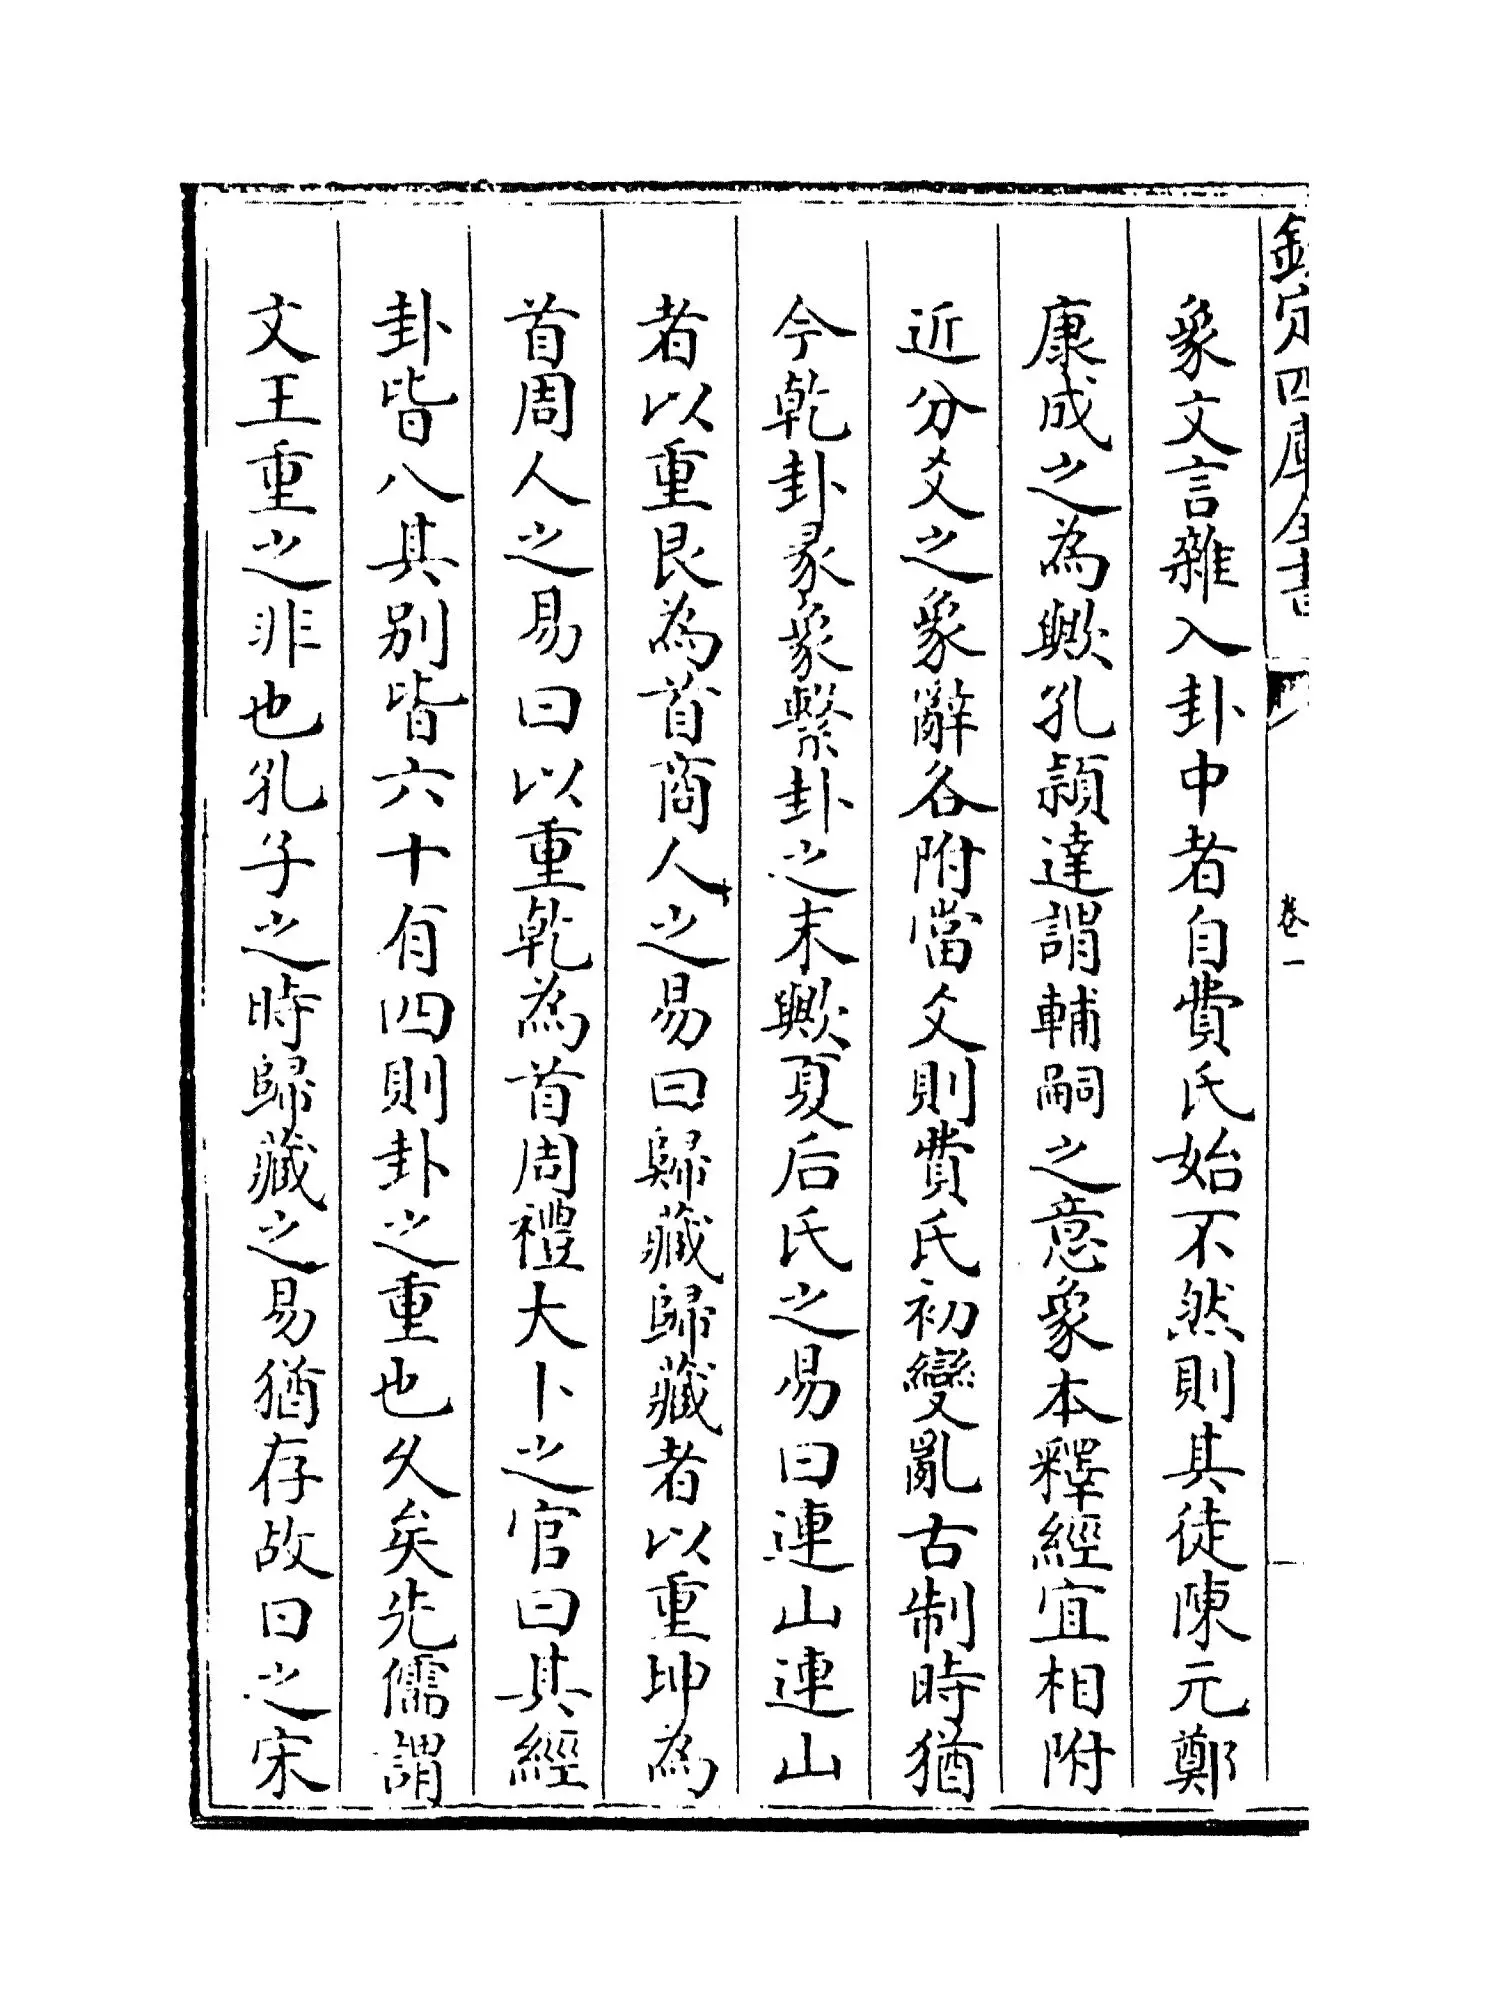 欽定四庫全書
卷一
象文言雜入卦中者自費氏始不然則其徒陳元鄭
康成之為歟孔頴達謂輔嗣之意象本釋經宜相附
近分爻之象辭各附當爻則費氏初變亂古制時猶
今乾卦彖象繫卦之末歟夏后氏之易曰連山連山
者以重艮為首商人之易曰歸藏歸藏者以重坤為
首周人之易曰以重乾為首周禮大卜之官曰其經
卦皆八其别皆六十有四則卦之重也久矣先儒謂
文王重之非也孔子之時歸藏之易猶存故曰之宋